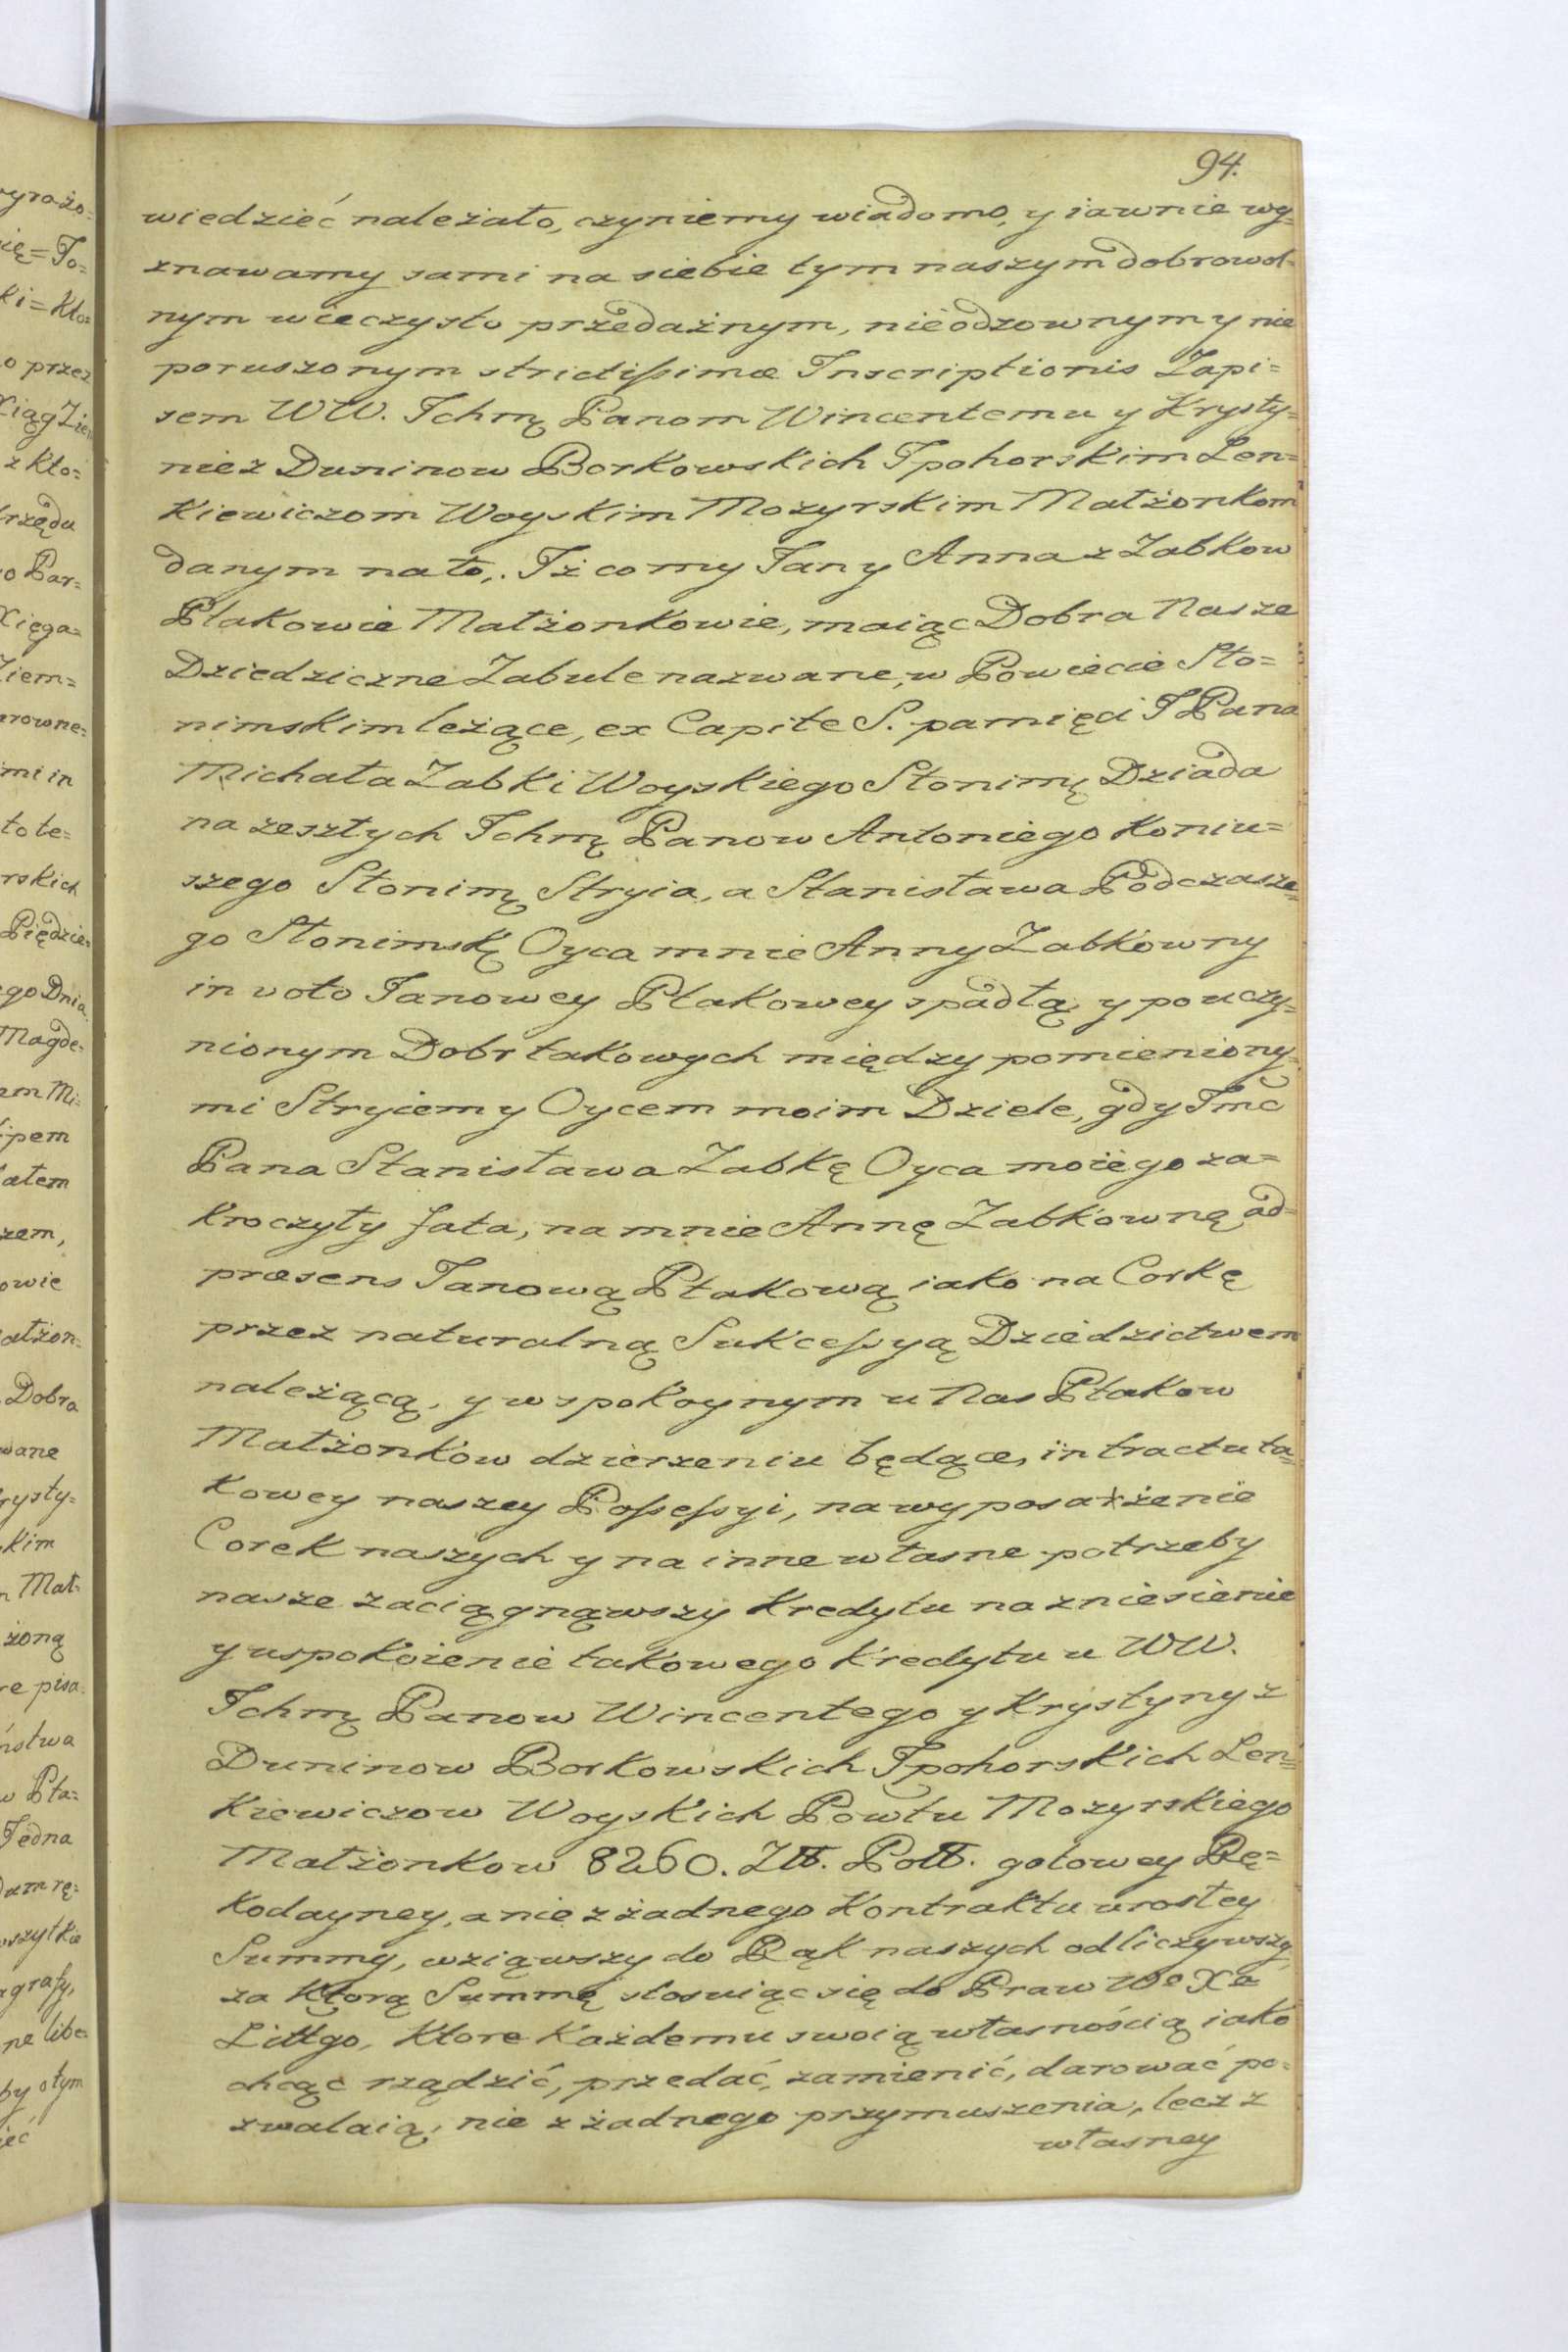 94.
wiedzieć należało, czyniemy wiadomo, y iawnie wy=
znawamy sami na siebie tym naszym dobrowol=
nym wieczysto przedażnym, nieodzownym y nie
poruszonym strictissimæ Inscriptionis Zapi=
sem WW. Ichmę Panom Wincentemu y Krysty=
nie z Duninow Borkowskich Ipohorskim Len=
Kiewiczom Woyskim Mozyrskim Małżonkom
danym na to,. Iż co my Jan y Anna z Zabkow
Płakowie Małżonkowie, maiąc Dobra Nasze
Dziedziczne Zabule nazwane, w Powiecie Sło=
nimskim leżące, ex Capite S. pamięci JPana
Michała Zabki Woyskiego Słonimę Dziada
na zeszłych Ichmę Panow Antoniego Koniu=
szego Słonimę Stryia, a Stanisława Podczasze=
go Słonimskę Oyca mnie Anny Zabkowny
in voto Janowey Ptakowey spadłą y po uczy=
nionym Dobr takowych między pomieniony=
mi Stryiem y Oycem moim Dziele, gdy Jmć
Pana Stanisława Zabkę Oyca moiego za=
kroczyły fata, na mnie Annę Zabkownę ad=
præsens Janową Ptakową iako na Corkę
przez naturalną Sukcessyą Dziedzictwem
należącą, y w spokoynym u Nas Ptakow
Małżonkow dzierzeniu będące, in tractu ta=
kowey naszey Possessyi, na wyposażenie
Corek naszych y na inne własne potrzeby
nasze zaciągnąwszy Kredytu na zniesienie
y uspokoienie takowego Kredytu u WW.
Ichmę Panow Wincentego y Krystyny z
Duninow Borkowskich Ipohorskich Len=
Kiewiczow Woyskich Powtu Mozyrskiego
Małżonkow 8260. Złł. Polł. gotowey Rę=
kodayney, a nie z żadnego Kontraktu urosłey
Summy, wziąwszy do Rąk naszych odliczywszy
za Ktorą Summę stosuiąc się do Praw Wo Xa
Littgo, Ktore Każdemu swoią własnością iako
chcąc rządzić, przedać, zamienić, darować po=
zwalaią, nie z żadnego przymuszenia, lecz z
własney